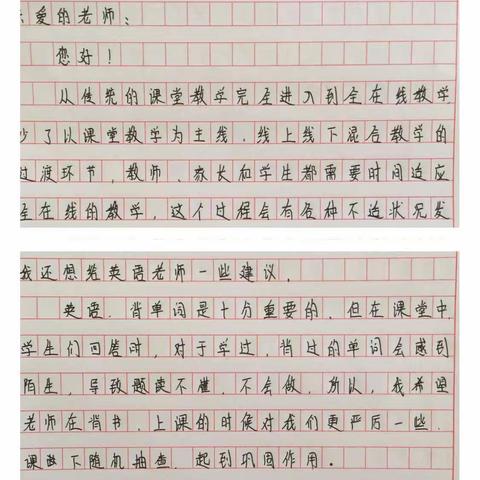 亲爱的老师：
您好！
从传统的课堂教学完全进入到全在线教学
少了以课堂教学为主线，线上线下混合教学的
过渡环节，教师、家长和学生都需要时间适应
全在线的教学，这个过程会有各种不适状况发
我还想给英语老师一些建议，
英语，背单词是十分重要的，但在课堂中
学生们回答时，对于学过，背过的单词会感到
陌生，导致题读不懂，不会做，所以，我希望
老师在背书，上课的时候对我们更严后一些，
课下随机抽查，起到巩固作用。